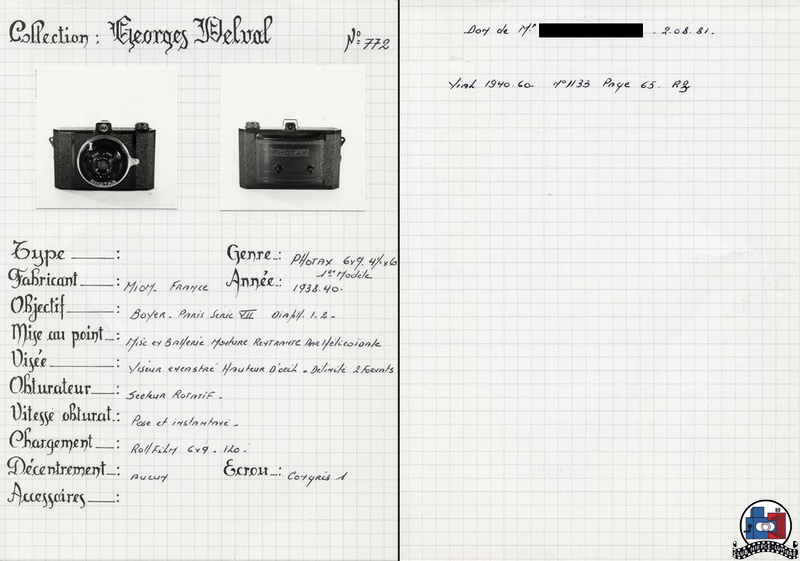 Collection : Georges Delval
N° 772
PHOTAX
PHOTAX
Type :
Genre : PHOTAX 6x9. 4½x6
1er Modèle
Fabricant : MIOM. FRANCE
Année : 1938.40.
Objectif : BOYER. PARIS SERIE VII DIAPH. 1.2.
Mise au point : Mise en Batterie Monture Rentrante Par Hélicoïdale
Visée : Viseur encastré Hauteur D'oeil. Délimité 2 Formats
Obturateur : Secteur Rotatif.
Vitesse obturat. : Pose et instantané.
Chargement : Roll Film 6x9. 120.
Décentrement : AUCUN
Ecrou : Congrès 1
Accessoires :
Don de Mr . 2.08.81.
Vial 1940.60. N°1133 Page 65.